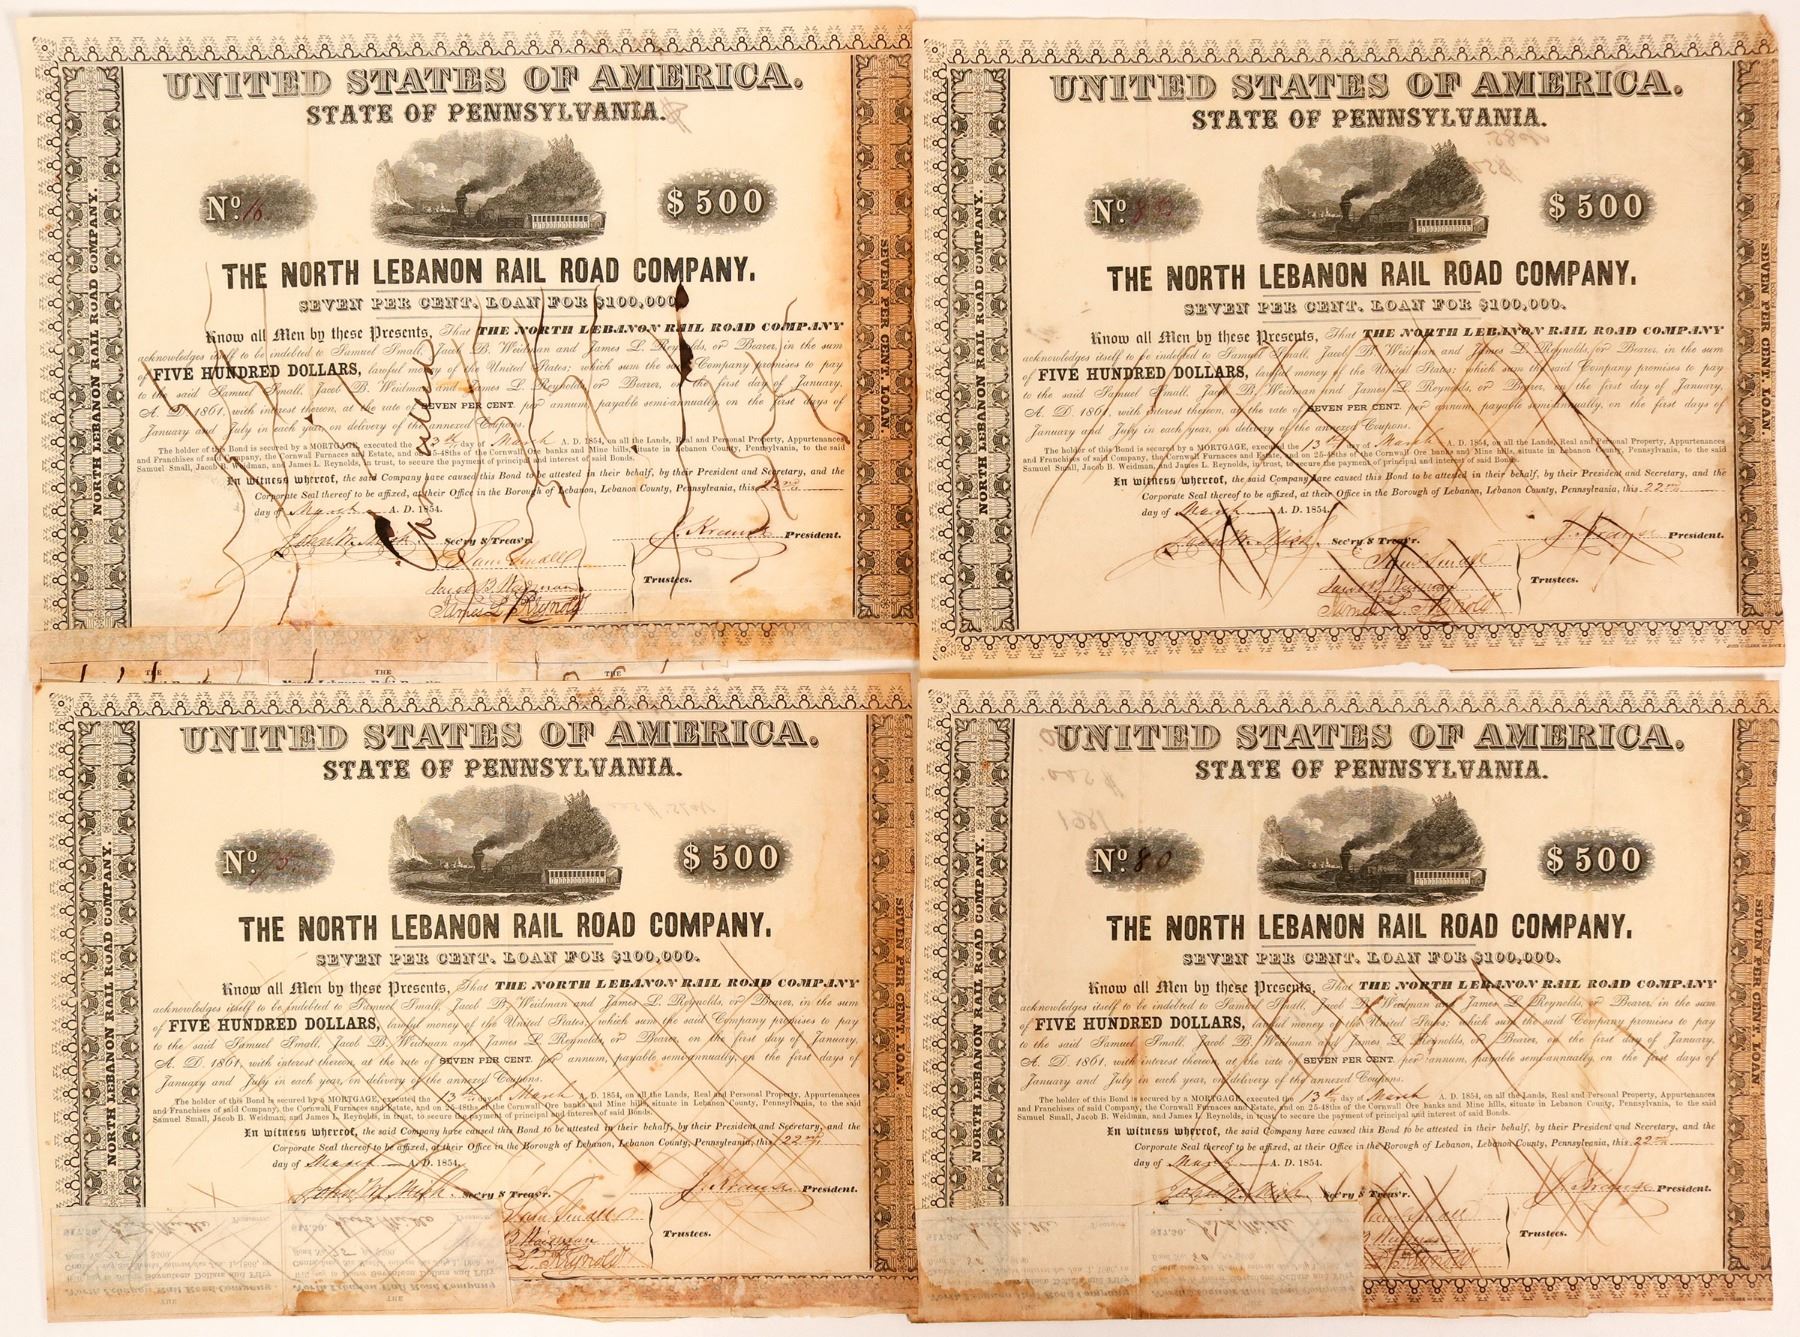 UNITED STATES OF AMERICA.
STATE OF PENNSYLVANIA.
No. 16.
$500
THE NORTH LEBANON RAIL ROAD COMPANY,
SEVEN PER CENT. LOAN FOR $100,000.
Know all Men by these Presents, That THE NORTH LEBANON RAIL ROAD COMPANY
acknowledges itself to be indebted to Samuel Small, Jacob B. Weidman and James L. Reynolds, or Bearer, in the sum
of FIVE HUNDRED DOLLARS, lawful money of the United States; which sum the said Company promises to pay
to the said Samuel Small, Jacob B. Weidman and James L. Reynolds, or Bearer, on the first day of January,
A. D. 1861, with interest thereon, at the rate of SEVEN PER CENT. per annum, payable semi-annually, on the first days of
January and July in each year, on delivery of the annexed Coupons.
The holder of this Bond is secured by a MORTGAGE, executed the 13th day of March A. D. 1854, on all the Lands, Real and Personal Property, Appurtenances
and Franchises of said Company, the Cornwall Furnaces and Estate, and on 25-48ths of the Cornwall Ore banks and Mine hills, situate in Lebanon County, Pennsylvania, to the said
Samuel Small, Jacob B. Weidman, and James L. Reynolds, in trust, to secure the payment of principal and interest of said Bonds.
In witness whereof, the said Company have caused this Bond to be attested in their behalf, by their President and Secretary, and the
Corporate Seal thereof to be affixed, at their Office in the Borough of Lebanon, Lebanon County, Pennsylvania, this 22nd
day of March A. D. 1854.
John W. Mish Sec'ry & Treas'r. J. Krause President.
Sam Small
Jacob B Weidman
James L. Reynolds
Trustees.
NORTH LEBANON RAIL ROAD COMPANY.
SEVEN PER CENT. LOAN.
THE
THE
THE
UNITED STATES OF AMERICA.
STATE OF PENNSYLVANIA.
No.
$500
THE NORTH LEBANON RAIL ROAD COMPANY,
SEVEN PER CENT. LOAN FOR $100,000.
Know all Men by these Presents, That THE NORTH LEBANON RAIL ROAD COMPANY
acknowledges itself to be indebted to Samuel Small, Jacob B. Weidman and James L. Reynolds, or Bearer, in the sum
of FIVE HUNDRED DOLLARS, lawful money of the United States; which sum the said Company promises to pay
to the said Samuel Small, Jacob B. Weidman and James L. Reynolds, or Bearer, on the first day of January,
A. D. 1861, with interest thereon, at the rate of SEVEN PER CENT. per annum, payable semi-annually, on the first days of
January and July in each year, on delivery of the annexed Coupons.
The holder of this Bond is secured by a MORTGAGE, executed the 13th day of March A. D. 1854, on all the Lands, Real and Personal Property, Appurtenances
and Franchises of said Company, the Cornwall Furnaces and Estate, and on 25-48ths of the Cornwall Ore banks and Mine hills, situate in Lebanon County, Pennsylvania, to the said
Samuel Small, Jacob B. Weidman, and James L. Reynolds, in trust, to secure the payment of principal and interest of said Bonds.
In witness whereof, the said Company have caused this Bond to be attested in their behalf, by their President and Secretary, and the
Corporate Seal thereof to be affixed, at their Office in the Borough of Lebanon, Lebanon County, Pennsylvania, this 22nd
day of March A. D. 1854.
John W. Mish Sec'ry & Treas'r. J. Krause President.
Sam Small
Jacob B Weidman
James L. Reynolds
Trustees.
NORTH LEBANON RAIL ROAD COMPANY.
SEVEN PER CENT. LOAN.
UNITED STATES OF AMERICA.
STATE OF PENNSYLVANIA.
No. 75.
$500
THE NORTH LEBANON RAIL ROAD COMPANY,
SEVEN PER CENT. LOAN FOR $100,000.
Know all Men by these Presents, That THE NORTH LEBANON RAIL ROAD COMPANY
acknowledges itself to be indebted to Samuel Small, Jacob B. Weidman and James L. Reynolds, or Bearer, in the sum
of FIVE HUNDRED DOLLARS, lawful money of the United States; which sum the said Company promises to pay
to the said Samuel Small, Jacob B. Weidman and James L. Reynolds, or Bearer, on the first day of January,
A. D. 1861, with interest thereon, at the rate of SEVEN PER CENT. per annum, payable semi-annually, on the first days of
January and July in each year, on delivery of the annexed Coupons.
The holder of this Bond is secured by a MORTGAGE, executed the 13th day of March A. D. 1854, on all the Lands, Real and Personal Property, Appurtenances
and Franchises of said Company, the Cornwall Furnaces and Estate, and on 25-48ths of the Cornwall Ore banks and Mine hills, situate in Lebanon County, Pennsylvania, to the said
Samuel Small, Jacob B. Weidman, and James L. Reynolds, in trust, to secure the payment of principal and interest of said Bonds.
In witness whereof, the said Company have caused this Bond to be attested in their behalf, by their President and Secretary, and the
Corporate Seal thereof to be affixed, at their Office in the Borough of Lebanon, Lebanon County, Pennsylvania, this 22nd
day of March A. D. 1854.
John W. Mish. Sec'ry & Treas'r. J. Krause President.
Sam Small
B Weidman
L. Reynolds
Trustees.
NORTH LEBANON RAIL ROAD COMPANY.
SEVEN PER CENT. LOAN.
UNITED STATES OF AMERICA.
STATE OF PENNSYLVANIA.
No. 80
$500
THE NORTH LEBANON RAIL ROAD COMPANY,
SEVEN PER CENT. LOAN FOR $100,000.
Know all Men by these Presents, That THE NORTH LEBANON RAIL ROAD COMPANY
acknowledges itself to be indebted to Samuel Small, Jacob B. Weidman and James L. Reynolds, or Bearer, in the sum
of FIVE HUNDRED DOLLARS, lawful money of the United States; which sum the said Company promises to pay
to the said Samuel Small, Jacob B. Weidman and James L. Reynolds, or Bearer, on the first day of January,
A. D. 1861, with interest thereon, at the rate of SEVEN PER CENT. per annum, payable semi-annually, on the first days of
January and July in each year, on delivery of the annexed Coupons.
The holder of this Bond is secured by a MORTGAGE, executed the 13th day of March A. D. 1854, on all the Lands, Real and Personal Property, Appurtenances
and Franchises of said Company, the Cornwall Furnaces and Estate, and on 25-48ths of the Cornwall Ore banks and Mine hills, situate in Lebanon County, Pennsylvania, to the said
Samuel Small, Jacob B. Weidman, and James L. Reynolds, in trust, to secure the payment of principal and interest of said Bonds.
In witness whereof, the said Company have caused this Bond to be attested in their behalf, by their President and Secretary, and the
Corporate Seal thereof to be affixed, at their Office in the Borough of Lebanon, Lebanon County, Pennsylvania, this 22nd
day of March A. D. 1854.
John W. Mish Sec'ry & Treas'r. J. Krause President.
Sam Small
B Weidman
L. Reynolds
Trustees.
NORTH LEBANON RAIL ROAD COMPANY.
SEVEN PER CENT. LOAN.